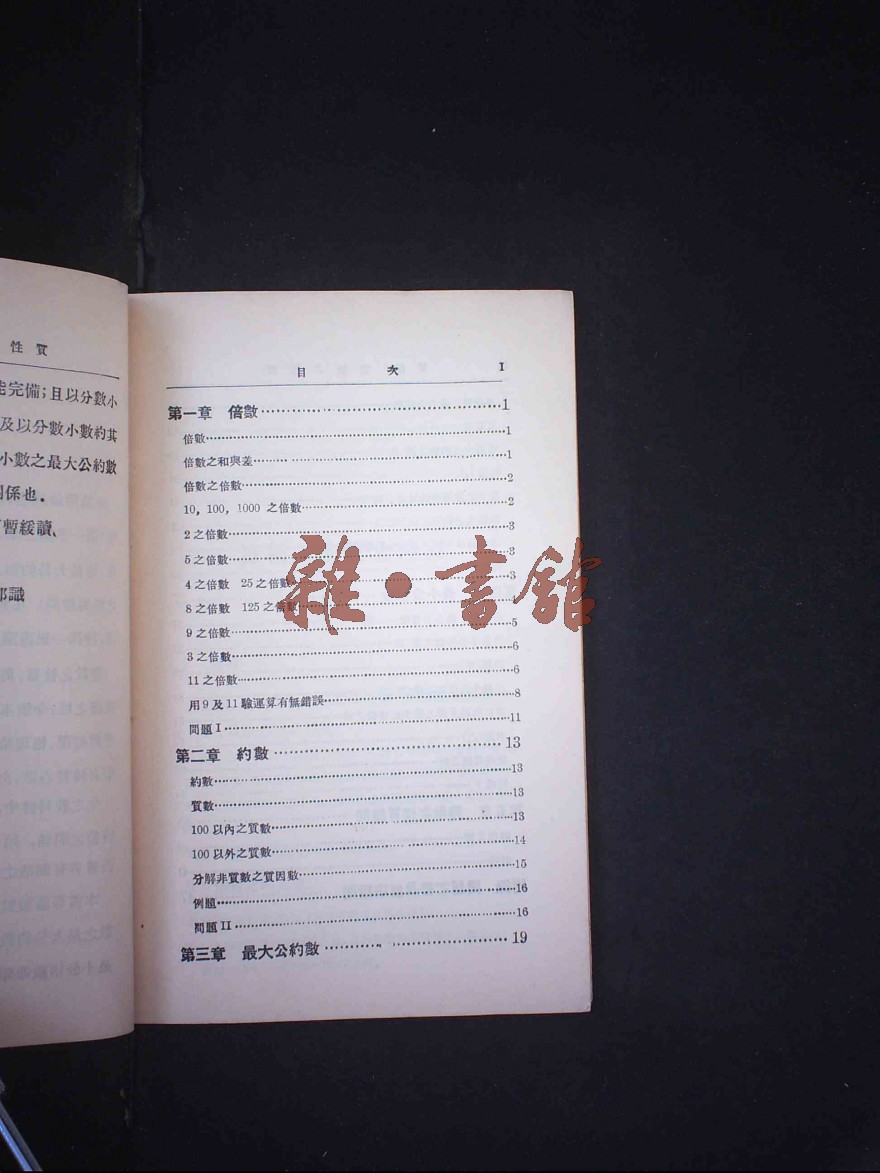 性質
能完備;且以分數小
及以分數小數約其
小數之最大公約數
關係也.
暫緩讀、
識
目 次 I
第一章 倍數 1
倍數 1
倍數之和與差 1
倍數之倍數 2
10, 100, 1000 之倍數 2
2之倍數 3
5之倍數 3
4之倍數 25之倍數 3
8之倍數 125之倍數 4
9之倍數 5
3之倍數 6
11之倍數 6
用9及11驗運算有無錯誤 8
問題 I 11
第二章 約數 13
約數 13
質數 13
100以內之質數 13
100以外之質數 14
分解非質數之質因數 15
例題 16
問題 II 16
第三章 最大公約數 19
雜·書館